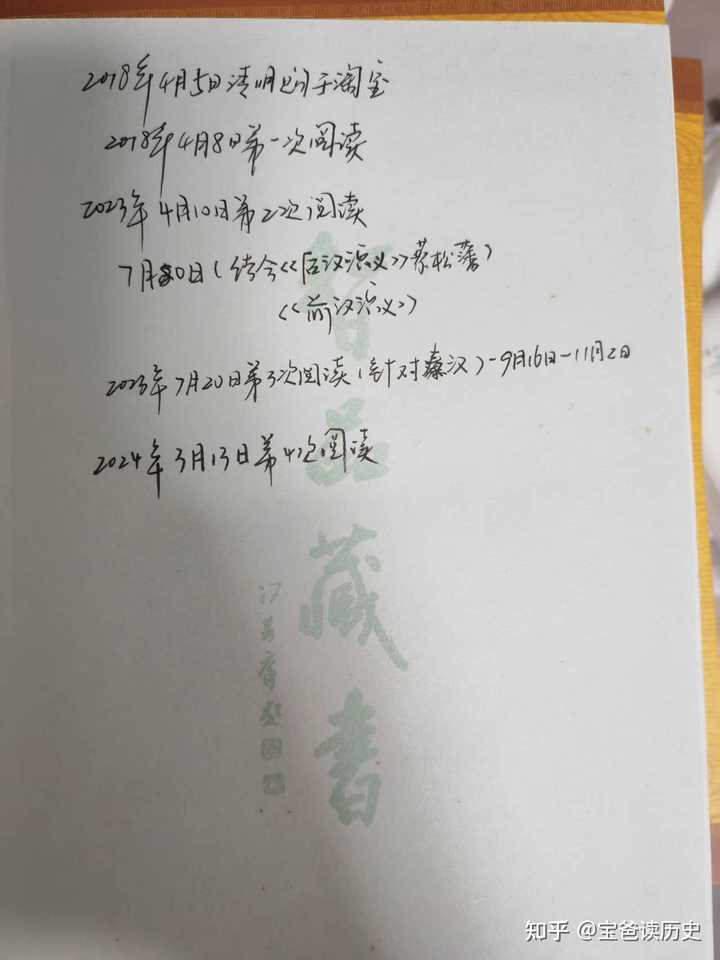 2018年4月5日清明购于淘宝
2018年4月8日第一次阅读
2023年4月10日第2次阅读
7月20日(结合<<后汉演义>>蔡松藩)
<<前汉演义>>
2023年7月20日第3次阅读(针对秦汉)-9月16日-11月2日
2024年3月13日第4次阅读
品藏书
知乎 @宝爸读历史